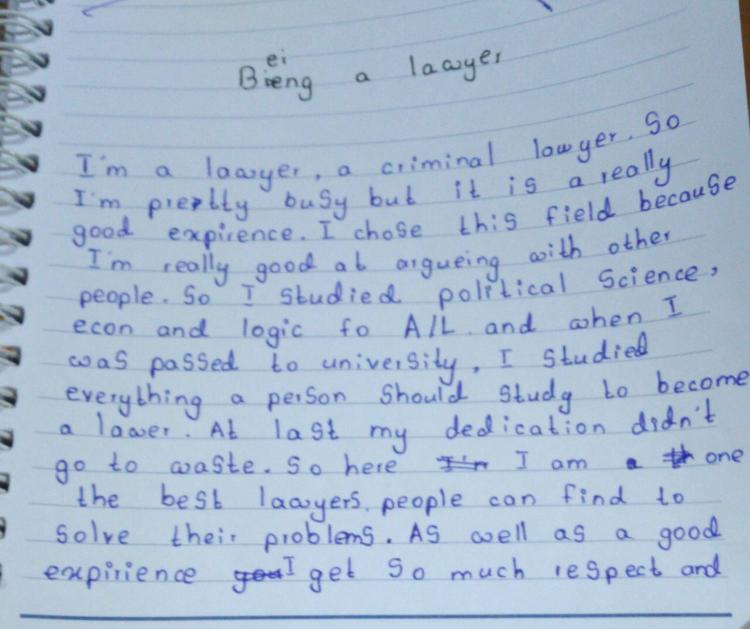 Bieng a lawyer
ei
I'm a lawyer, a criminal lawyer. So
I'm pretty busy but it is a really
good expirence. I chose this field because
I'm really good at argueing with other
people. So I studied political Science,
econ and logic fo A/L and when I
was passed to university, I studied
everything a person should study to become
a lawer. At last my dedication didn't
go to waste. So here I am one
the best lawyers people can find to
solve their problems. As well as a good
expirience I get so much respect and